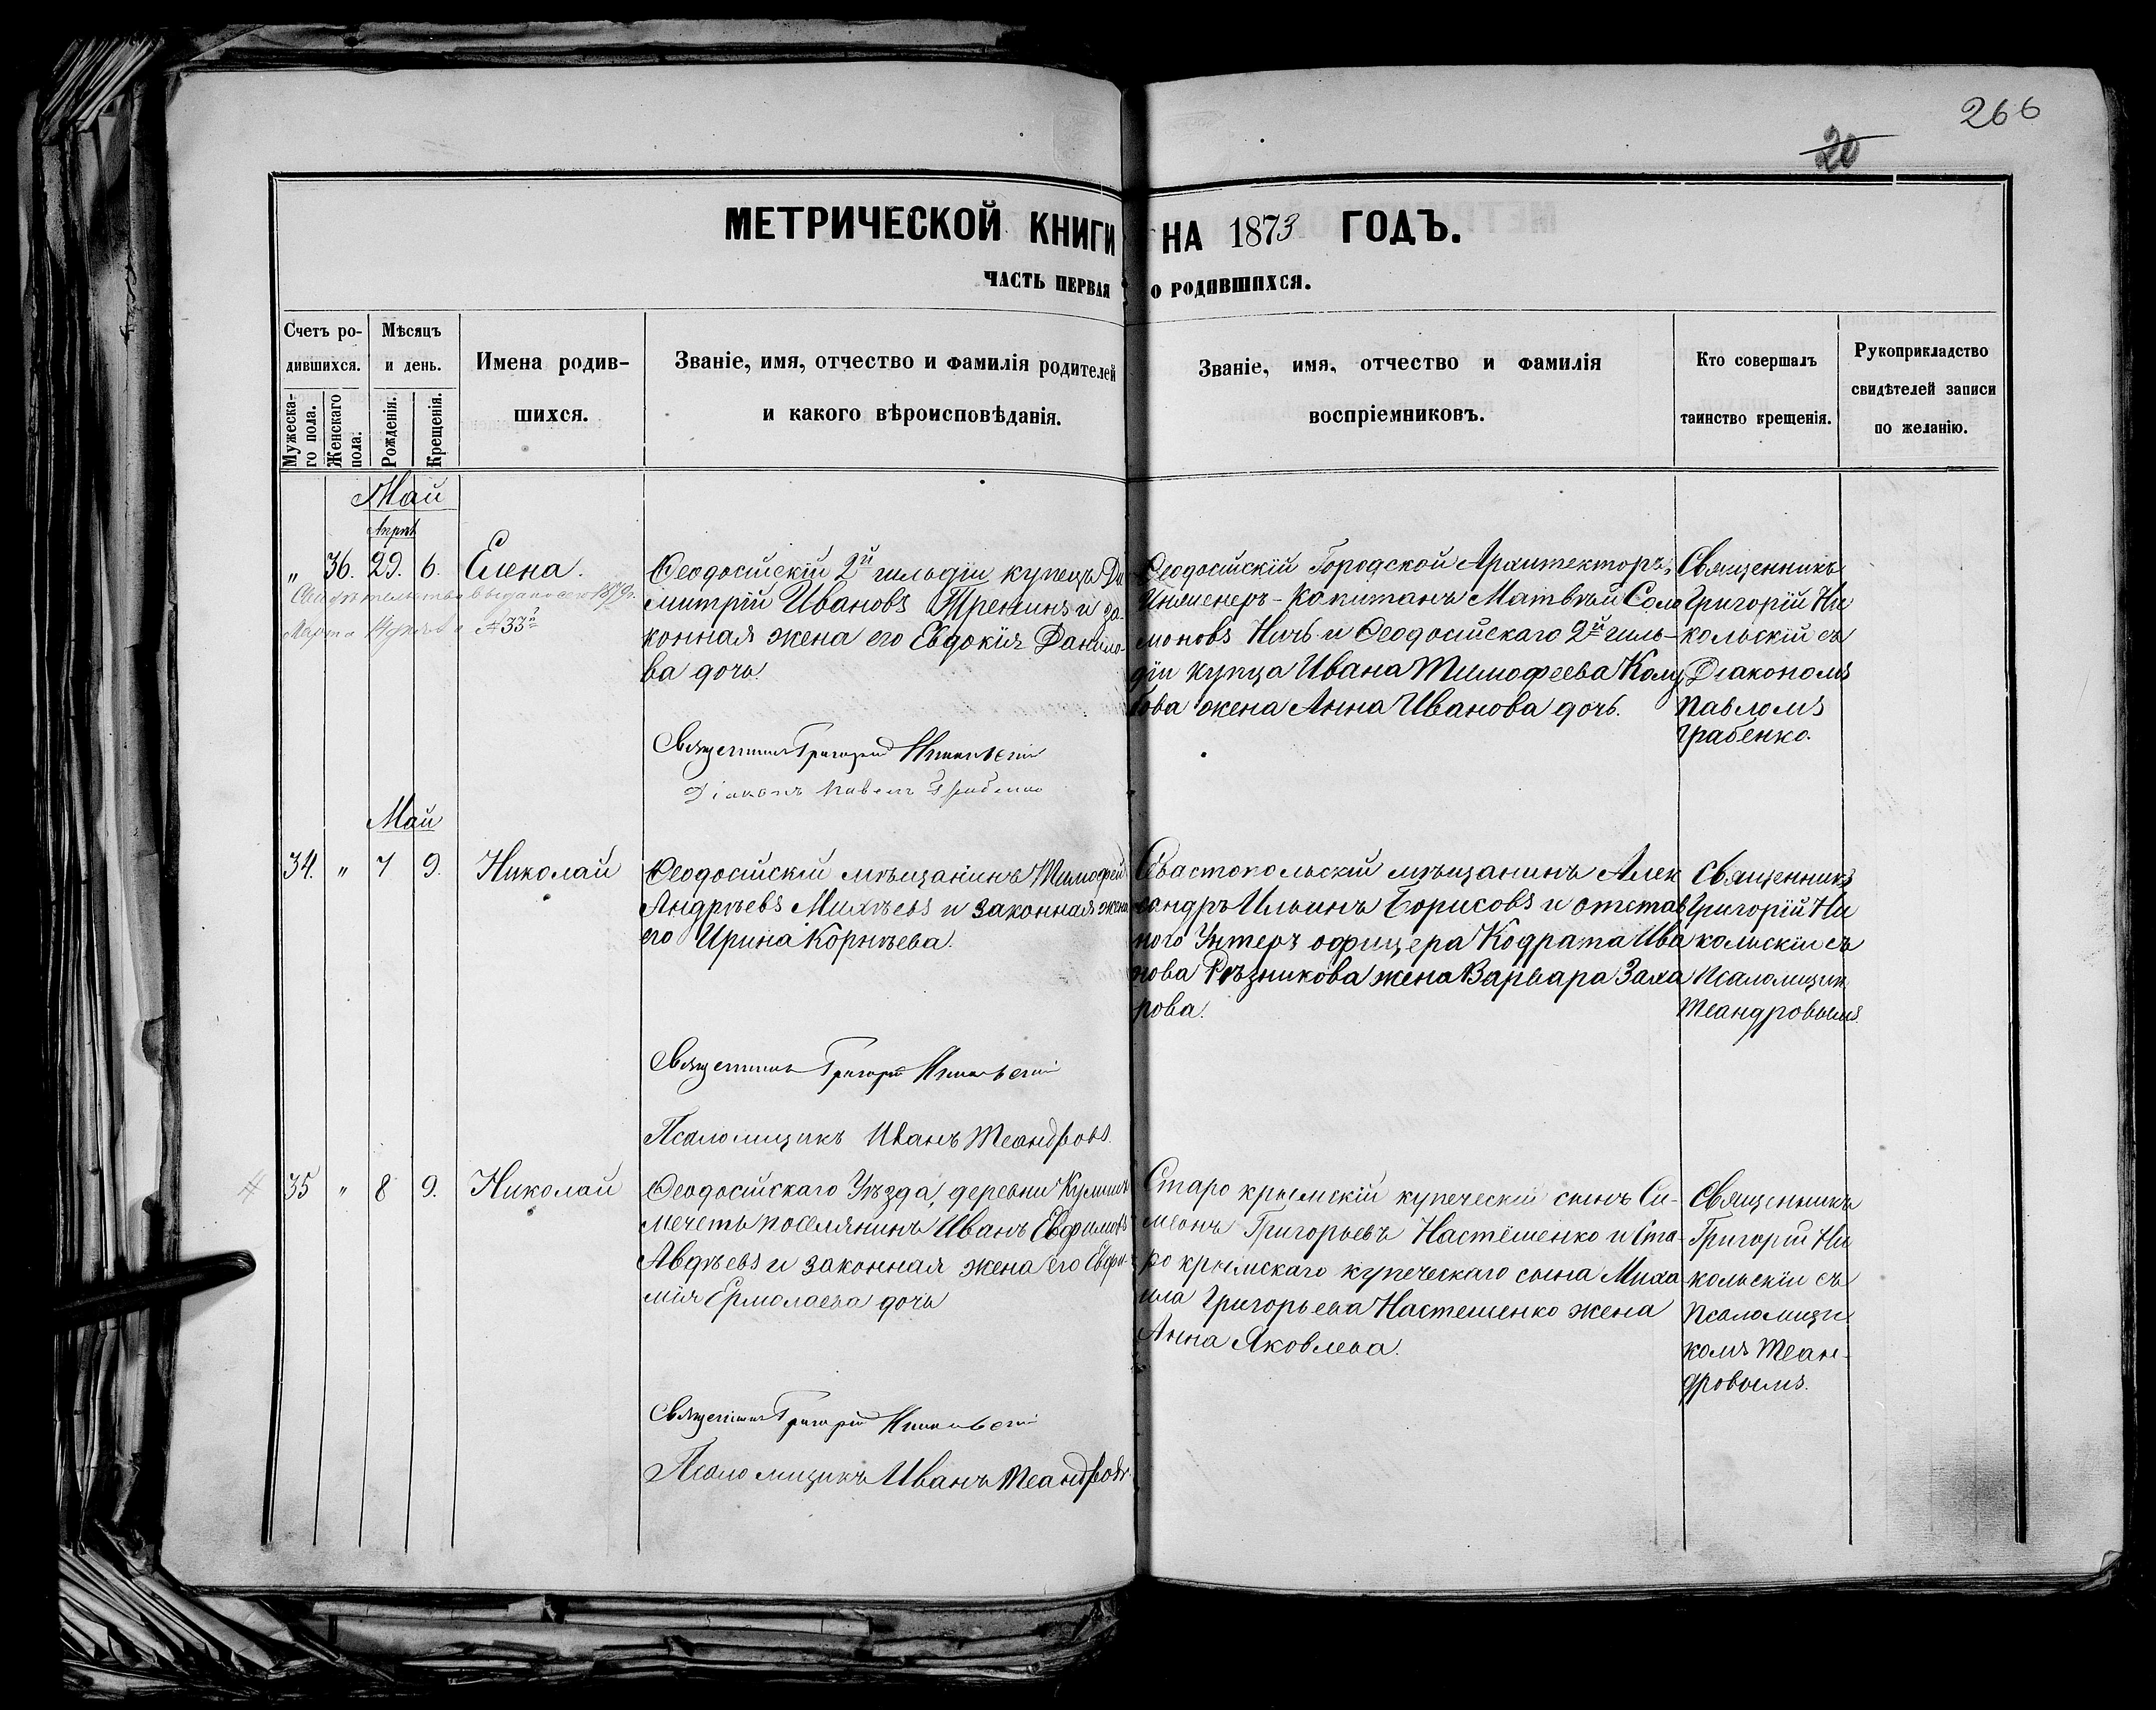 266
20
МЕТРИЧЕСКОЙ КНИГИ НА 1873 ГОДЪ.
ЧАСТЬ ПЕРВАЯ О РОДИВШИХСЯ.
Счетъ ро-
дившихся.
Мужеска-
го пола.
Женскаго
пола.
Мѣсяцъ
и день.
Рожденія.
Крещенія.
Имена родив-
шихся.
Званіе, имя, отчество и фамилія родителей
и какого вѣроисповѣданія.
Званіе, имя, отчество и фамилія
воспріемниковъ.
Кто совершалъ
таинство крещенія.
Рукоприкладство
свидѣтелей записи
по желанію.
Май
Апрѣл
„ 36. 29. 6. Елена.
Свидѣтельство выдано сего 1879г.
Марта № 33
Ѳеодосійскій 2й гильдіи купецъ Ди
митрій Ивановъ Тренинъ и за-
конная жена его Евдокія Данило-
ва дочь
Священникъ Григорій Никольскій
Діаконъ Павелъ Грабенко
Ѳеодосійскій Городской Архитекторъ,
Инженеръ-Капитанъ Матвѣй Соло
моновъ Ничъ и Ѳеодосійскаго 2й гиль-
діи купца Ивана Тимофеева
жена Анна Иванова дочь.
Священникъ
Григорій Ни
кольскій съ
Діакономъ
Павломъ
Грабенко.
Май
34. „ 7 9. Николай
Ѳеодосійскій мѣщанинъ Тимофей
Андрѣевъ Михѣевъ и законная жена
его Ирина Корнѣева.
Священникъ Григорій Никольскій
Псаломщикъ Иванъ Теандровъ.
Севастопольскій мѣщанинъ Алек
сандръ Ильинъ Борисовъ и отстав
ного Унтеръ офицера Кодрата Ива
нова Рѣзникова жена Варвара Заха
рова.
Священникъ
Григорій Ни
кольскій съ
Псаломщик
Теандровымъ.
35 „ 8 9. Николай
Ѳеодосійскаго Уѣзда, деревни
мечеть поселянинъ Иванъ Евфимовъ
Авдѣевъ и законная жена его Евфи-
мія Ермолаева дочь
Священникъ Григорій Никольскій
Псаломщикъ Иванъ Теандровъ
Старо крымскій купеческій сынъ Си-
меонъ Григорьевъ Настёшенко и Ста-
ро крымскаго купеческаго сына Миха
ила Григорьева Настешенко жена
Анна Яковлева.
Священникъ
Григорій Ни
кольскій съ
Псаломщи
комъ Теан-
дровымъ.